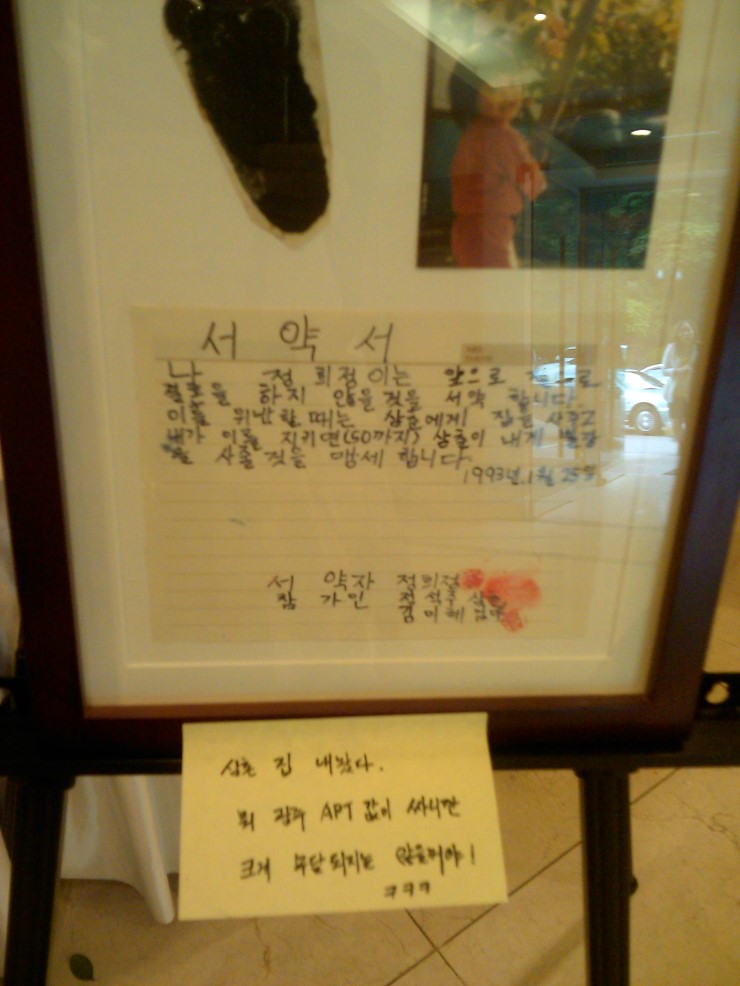 서 약 서
나 정희정이는 앞으로 절대로
결혼을 하지 않을것을 서약 합니다.
이를 위반할 때는 삼촌에게 집을 사주고
내가 이를 지키면(50까지) 삼촌이 내게
을 사줄것을 맹세합니다.
1993년 1월 25일
서 약자 정희정
참 가인 정석주 삼촌
김미혜 엄마
삼촌 집 내놨다.
뭐 광주 APT 값이 싸니깐
크게 부담되지는 않을꺼야!
ㅋㅋㅋ